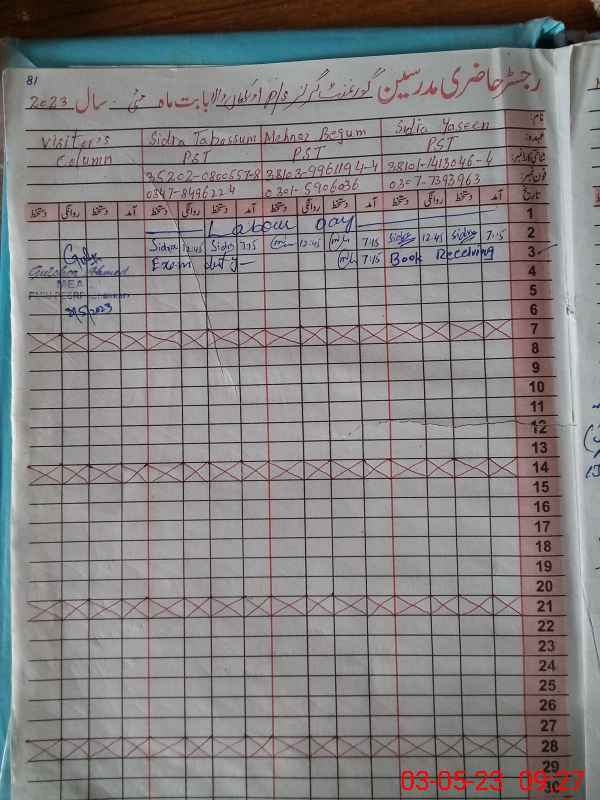 81
رجسٹر حاضری مدرسین گورنمنٹ گرلز P/S بابت ماہ مئی سال 2023
نام: Sidia Yaseen Mehnaz Begum Sidra Tabassum Visitor's
عہدہ: PST PST PST Column
شناختی کارڈ نمبر: 38101-1413046-4 38103-9961194-4 35202-0800557-8
فون نمبر: 0307-7393963 0301-5906036 0347-8496224
تاریخ آمد دستخط روانگی دستخط آمد دستخط روانگی دستخط آمد دستخط روانگی دستخط آمد دستخط روانگی دستخط
1 Labour Day
2 7:15 Sidra 12:45 Sidra 7:15 12:45 7:15 Sidra 12:45 Sidra
3 Book Receiving 7:15 Exam duty
4
MEA
5
6
3/5/2023
7
8
9
10
11
12
13
14
15
16
17
18
19
20
21
22
23
24
25
26
27
28
29
30
03-05-23 09:27